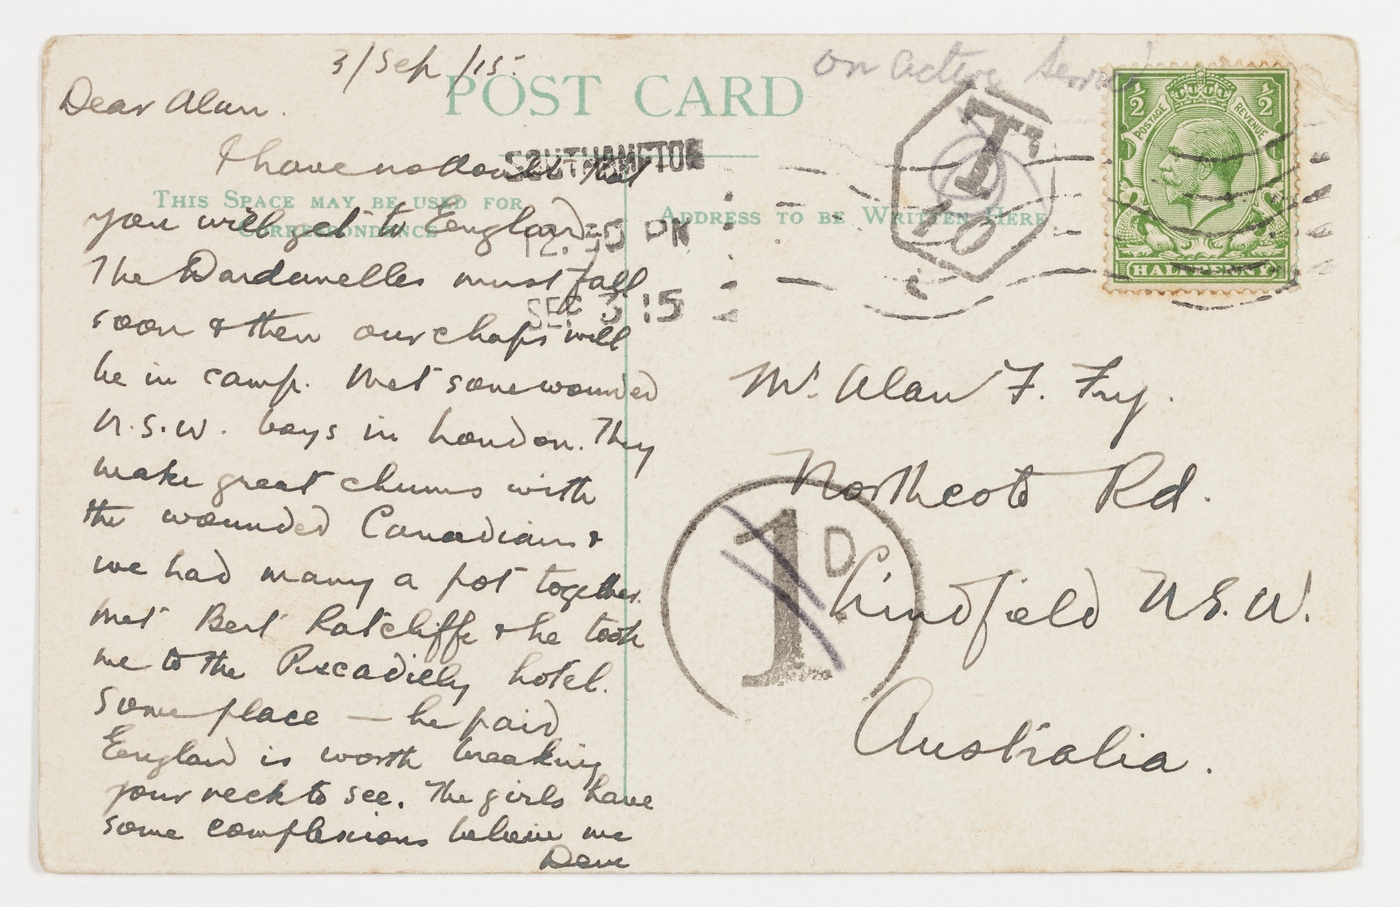 3/Sep/15.
POST CARD
on active service
Dear Alan.
I have no doubt that
you will get to England
The Dardanelles must fall
soon & then our chaps will
be in camp. Met some wounded
N.S.W. boys in London. They
make great chums with
the wounded Canadians &
we had many a pot together.
Met Bert Ratcliffe & he took
me to the Piccadilly hotel.
Some place — he paid
England is worth breaking
your neck to see. The girls have
some complexions believe me
Dave
THIS SPACE MAY BE USED FOR
CORRESPONDENCE
ADDRESS TO BE WRITTEN HERE
SOUTHAMPTON
12.30 PM
SEP 3 15
T
10
½ ½
POSTAGE REVENUE
HALFPENNY
Mr. Alan F. Fry.
Northcote Rd.
Lindfield N.S.W.
Australia.
1D